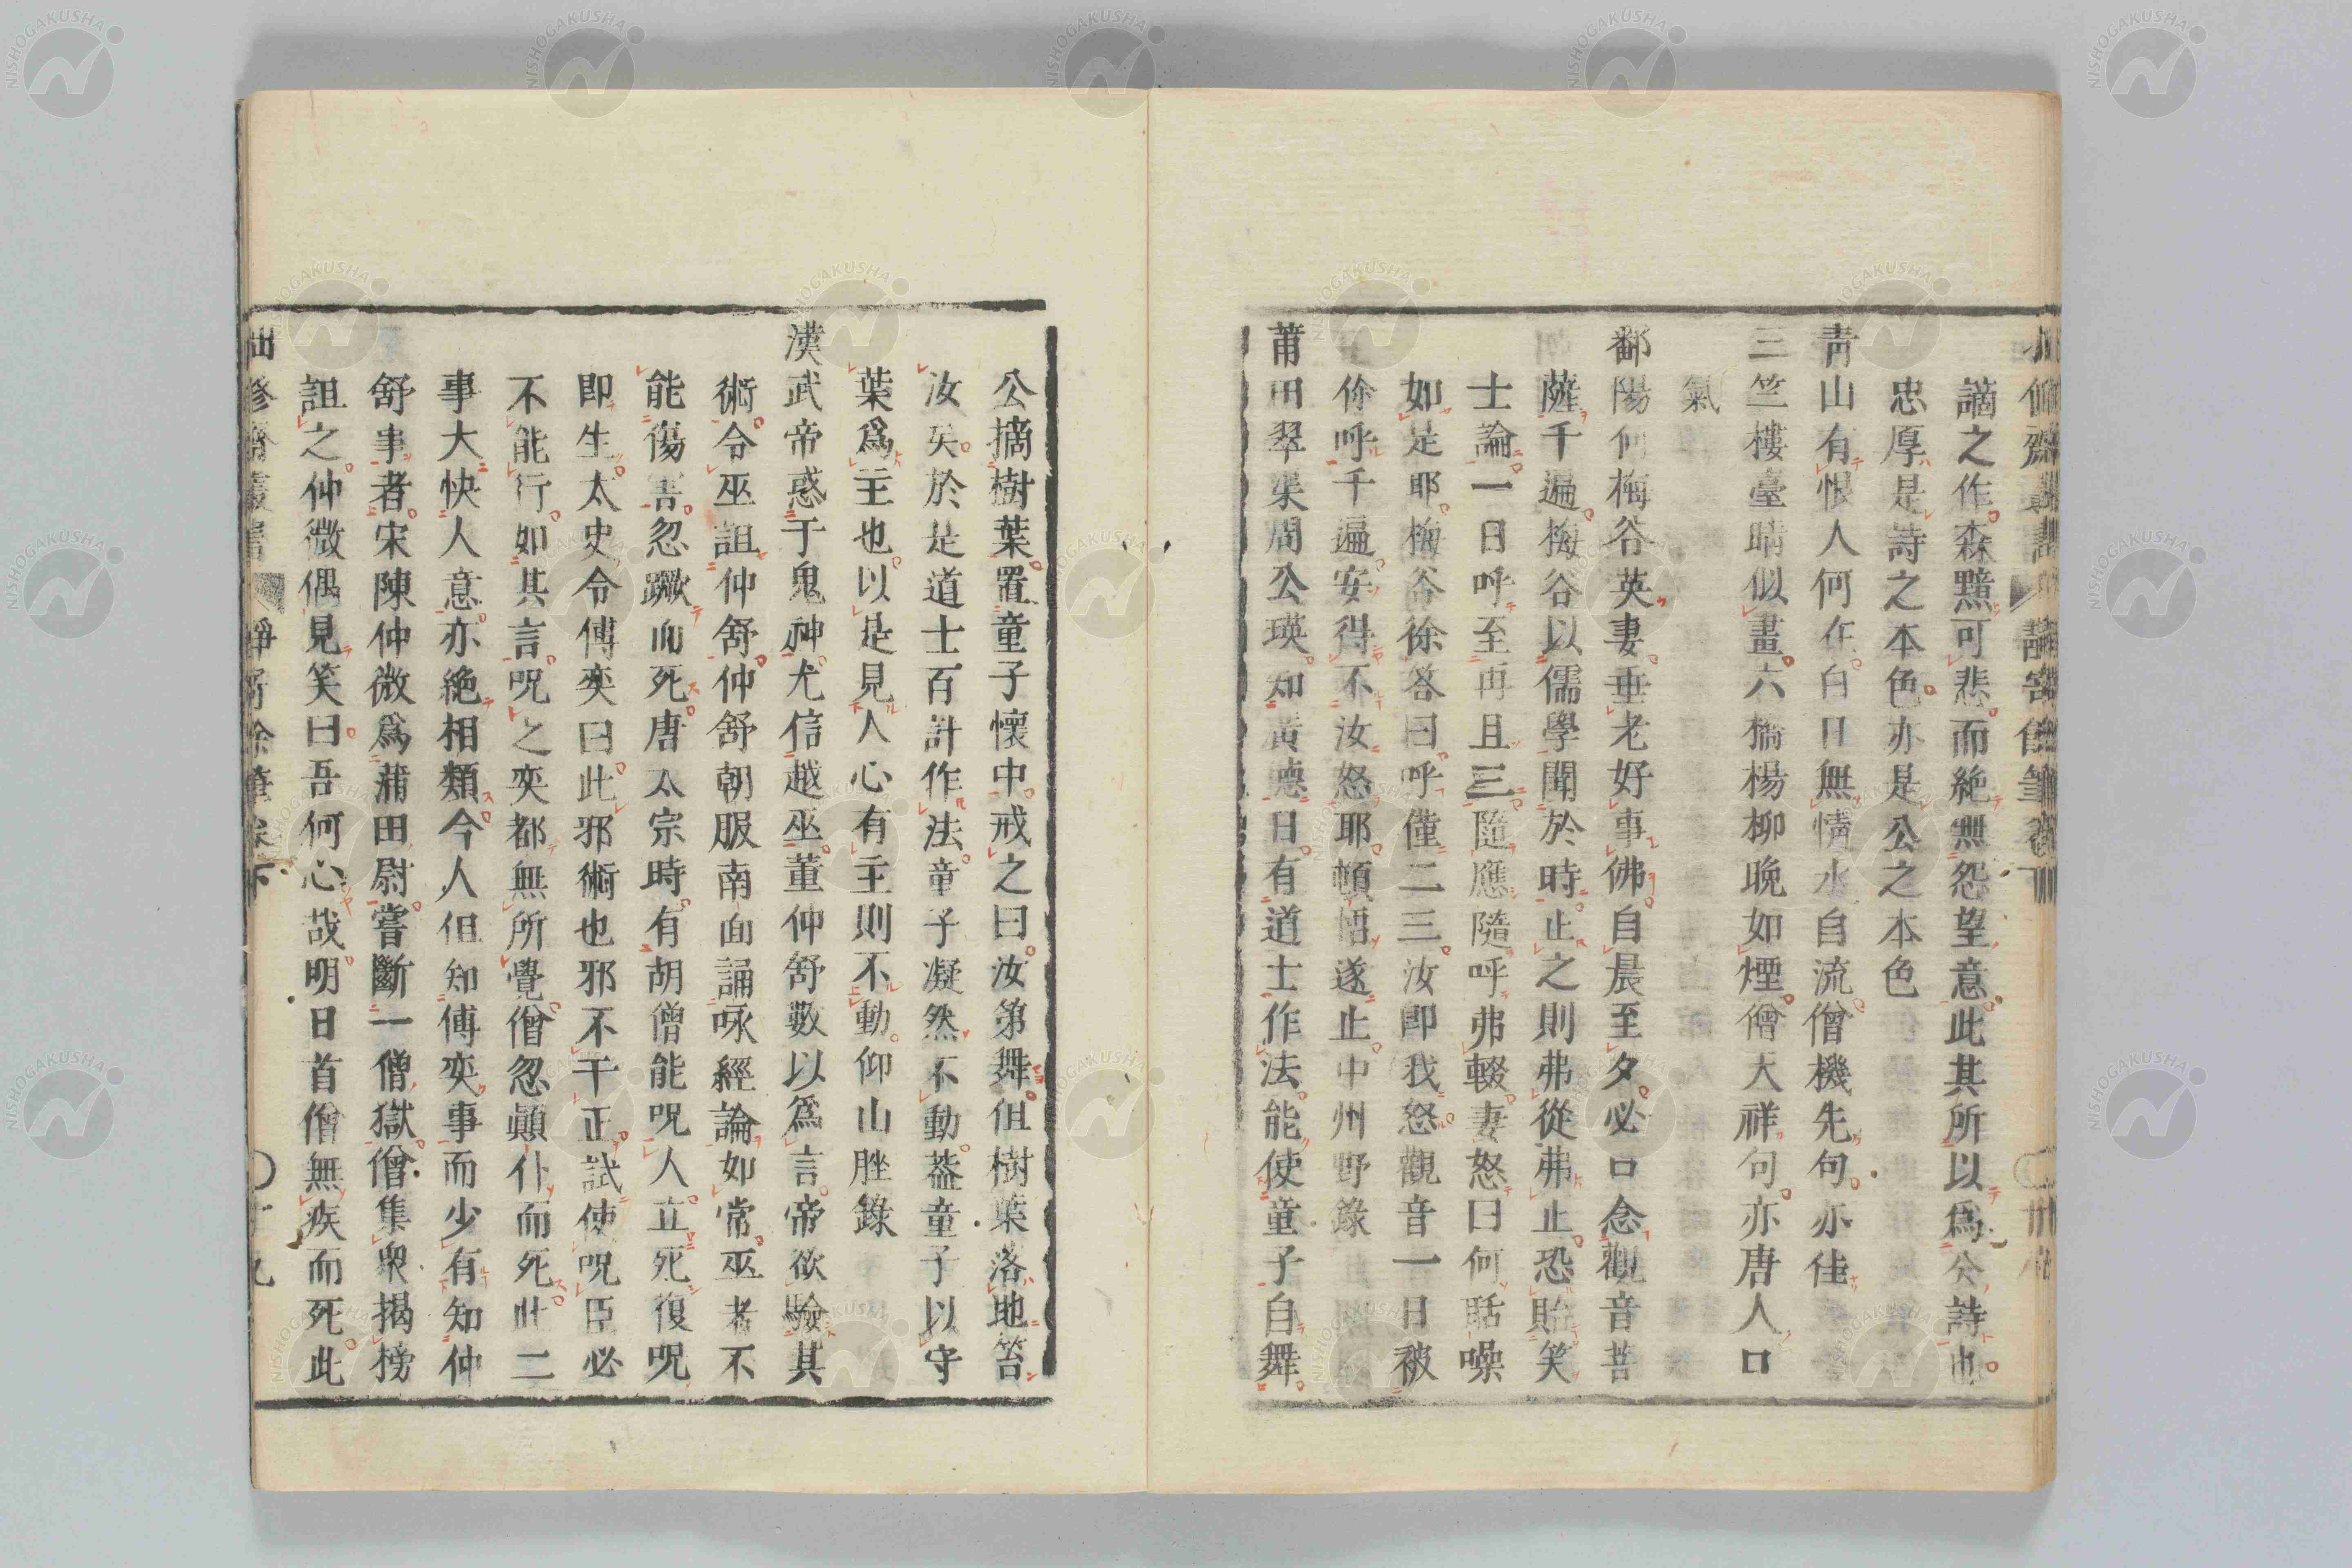 謫之作森黯可悲而絶無怨望意此其所以爲公詩也
忠厚是詩之本色亦是公之本色
青山有恨人何在白日無情水自流僧機先句亦佳
三竺樓臺晴似畫六橋楊柳晩如煙僧天祥句亦唐人口
氣
鄱陽何梅谷英妻垂老好事佛自晨至夕必口念觀音菩
薩千遍梅谷以儒學聞於時止之則弗從弗止恐貽笑
士論一日呼至再且三隨應隨呼弗輟妻怒曰何聒噪
如是耶梅谷徐答曰呼僅二三汝即我怒觀音一日被
你呼千遍安得不汝怒耶頓悟遂止中州野錄
莆田翠渠周公瑛知廣德日有道士作法能使童子自舞
公摘樹葉置童子懷中戒之曰汝第舞但樹葉落地笞
汝矣於是道士百計作法童子凝然不動葢童子以守
葉爲主也以是見人心有主則不動仰山脞錄
漢武帝惑于鬼神尤信越巫董仲舒數以爲言帝欲驗其
術令巫詛仲舒仲舒朝服南面誦咏經論如常巫者不
能傷害忽蹶而死唐太宗時有胡僧能呪人立死復呪
即生太史令傅奕曰此邪術也邪不干正試使呪臣必
不能行如其言呪之奕都無所覺僧忽顚仆而死此二
事大快人意亦絶相類今人但知傅奕事而少有知仲
舒事者宋陳仲微爲蒲田尉嘗斷一僧獄僧集衆揭榜
詛之仲微偶見笑曰吾何心哉明日首僧無疾而死此